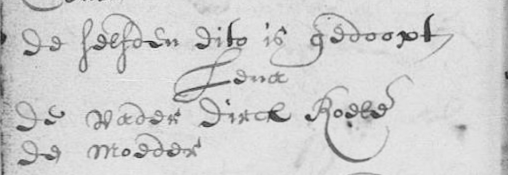 de selfden dito is gedoopt
Lena
de vader Dirck Roele
de moeder